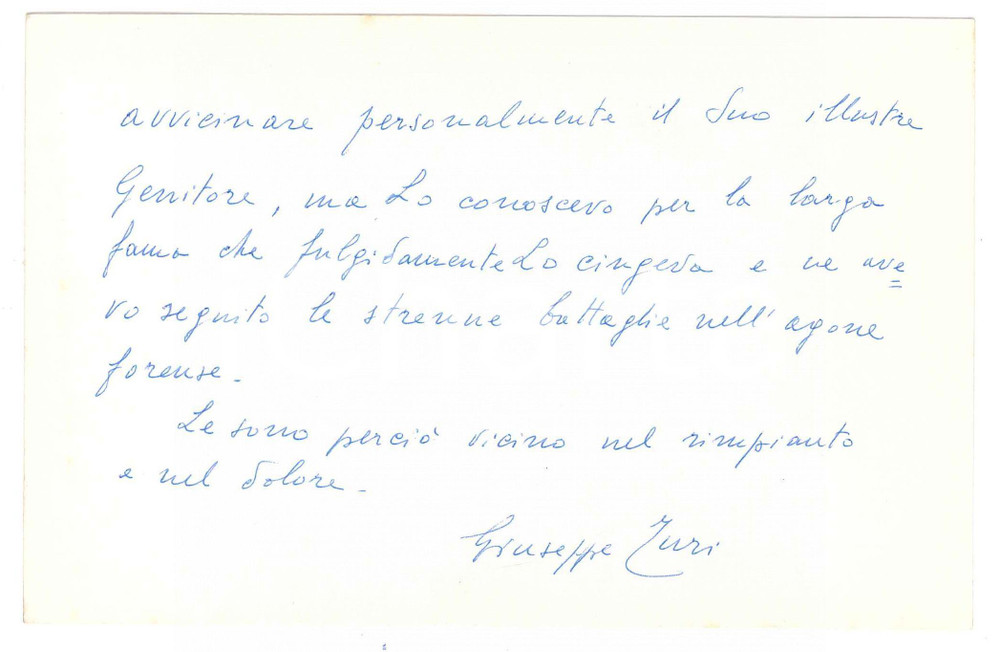 avvicinare personalmente il Suo illustre
Genitore, ma Lo conoscevo per la larga
fama che fulgidamente Lo cingeva e ne ave
vo seguito le strenne battaglie nell'agone
forense.
Le sono perciò vicino nel rimpianto
e nel dolore.
Giuseppe